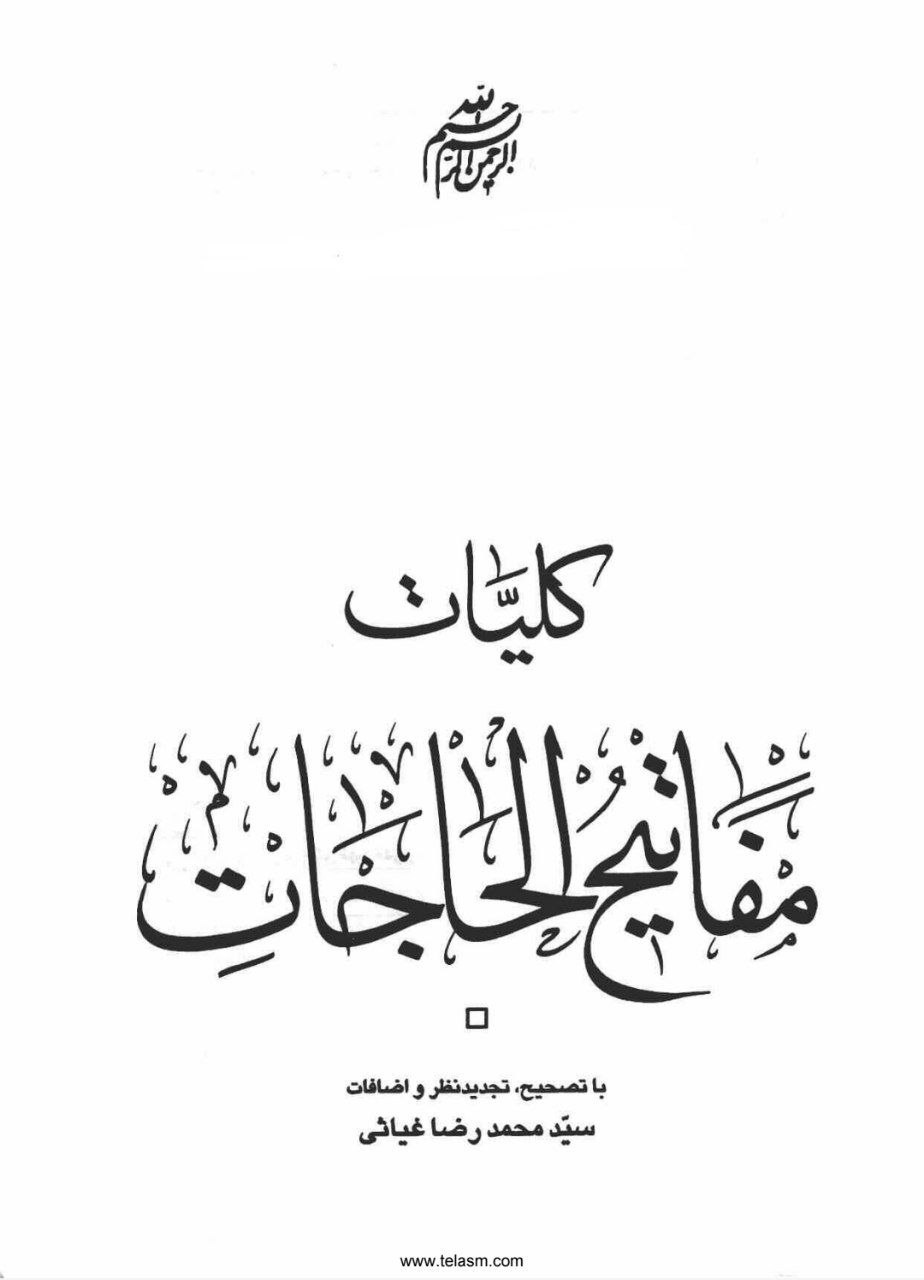 بسم الله الرحمن الرحیم
کلیّات
مَفَاتیحُ الحَاجَاتِ
با تصحیح، تجدیدنظر و اضافات
سیّد محمد رضا غیاثی
www.telasm.com